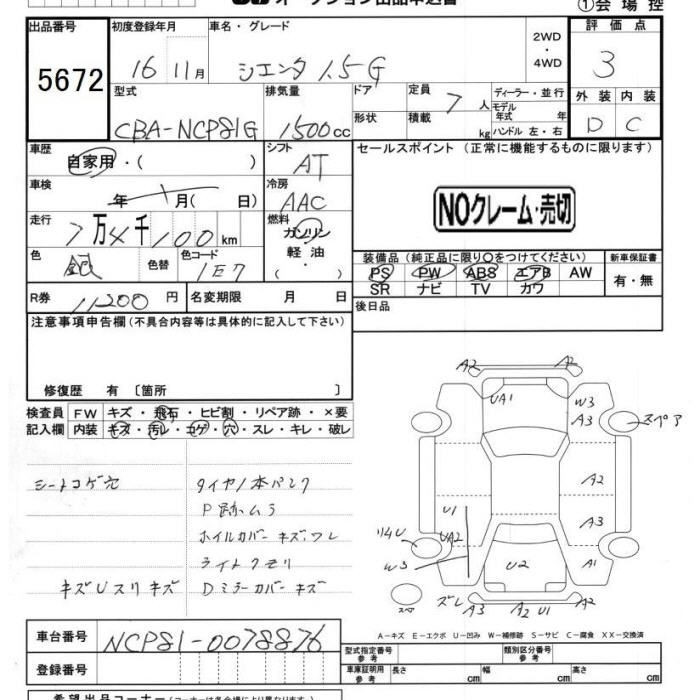 オークション出品申込書
①会場控
出品番号 初度登録年月 車名・グレード 評価点
5672 16 11月 シエンタ 1.5G 2WD・4WD 3
型式 排気量 ドア 定員 ディーラー・並行 外装 内装
CBA-NCP81G 1500cc 形状 7人 積載 kg モデル年式 年 ハンドル 左・右 D C
車歴 シフト セールスポイント (正常に機能するものに限ります)
自家用・( ) AT
車検 冷房
年 月( 日) AAC NOクレーム・売切
走行 燃料
7万4千100km ガソリン
軽油
・( )
色 色替 色コード 装備品 (純正品に限り○をつけてください) 新車保証書
銀 1E7 PS PW ABS エアB AW 有・無
SR ナビ TV カワ
R券 11200円 名変期限 月 日 後日品
注意事項申告欄 (不具合内容等は具体的に記入して下さい)
修復歴 有 [箇所 ]
検査員 FW キズ・飛石・ヒビ割・リペア跡・×要
記入欄 内装 キズ・汚レ・コゲ・穴・スレ・キレ・破レ
シートコゲ穴 タイヤ1本パンク
P跡ムラ
ホイルカバーキズ、ワレ
ライトクモリ
キズUスリキズ Dミラーカバーキズ
A2 A2
UA1 W3
A3 スペア
A2
U1 A3
UA2
リムU
W3 U2 A1
スペ ズレ A3 A2 U1 A2
A-キズ E-エクボ U-凹み W-補修跡 S-サビ C-腐食 XX-交換済
車台番号 NCP81-0078876 型式指定番号 参考 類別区分番号 参考
登録番号 車庫証明用 参考 長さ cm 幅 cm 高さ cm
希望出品コーナー (コーナーは各会場により異なります)